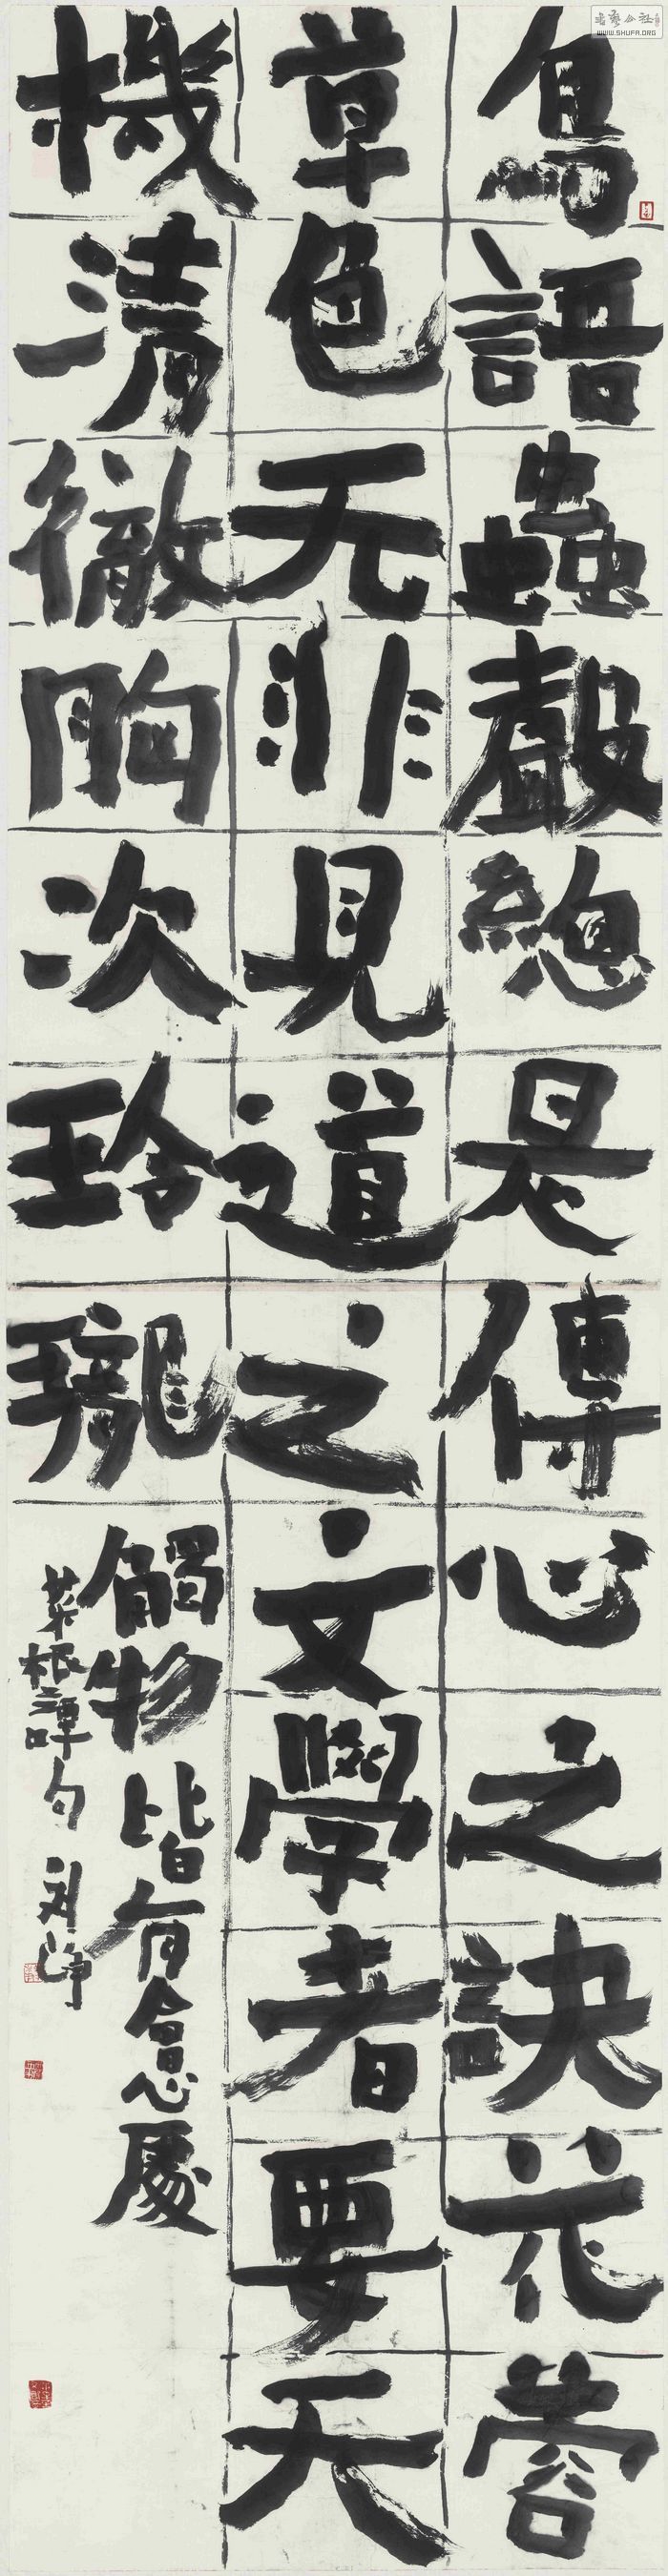 鳥語蟲聲總是傳心之訣花蓉
草色无非見道之文學者要天
機清徹胸次玲瓏
觸物皆有會心處
菜根譚句
书法公社
WWW.SHUFA.ORG